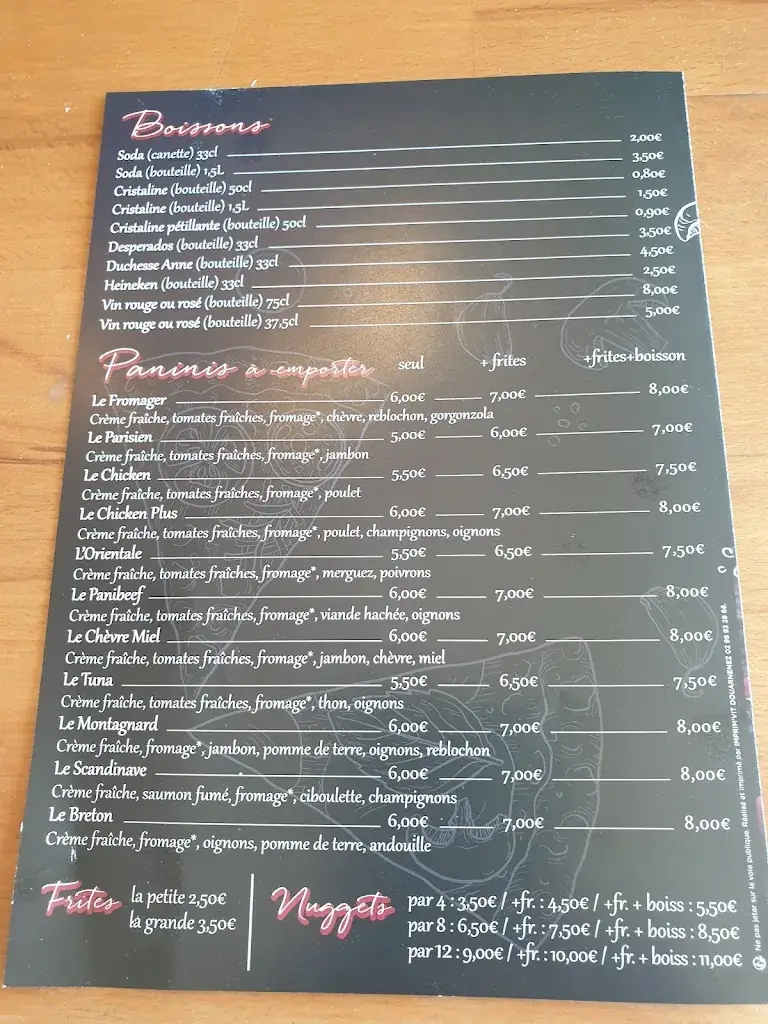 Boissons
Soda (canette) 33cl 2,00€
Soda (bouteille) 1,5L 3,50€
Cristaline (bouteille) 50cl 0,80€
Cristaline (bouteille) 1,5L 1,50€
Cristaline pétillante (bouteille) 50cl 0,90€
Desperados (bouteille) 33cl 3,50€
Duchesse Anne (bouteille) 33cl 4,50€
Heineken (bouteille) 33cl 2,50€
Vin rouge ou rosé (bouteille) 75cl 8,00€
Vin rouge ou rosé (bouteille) 37,5cl 5,00€
Paninis à emporter seul + frites +frites+boisson
Le Fromager 6,00€ 7,00€ 8,00€
Crème fraîche, tomates fraîches, fromage*, chèvre, reblochon, gorgonzola
Le Parisien 5,00€ 6,00€ 7,00€
Crème fraîche, tomates fraîches, fromage*, jambon
Le Chicken 5,50€ 6,50€ 7,50€
Crème fraîche, tomates fraîches, fromage*, poulet
Le Chicken Plus 6,00€ 7,00€ 8,00€
Crème fraîche, tomates fraîches, fromage*, poulet, champignons, oignons
L'Orientale 5,50€ 6,50€ 7,50€
Crème fraîche, tomates fraîches, fromage*, merguez, poivrons
Le Panibeef 6,00€ 7,00€ 8,00€
Crème fraîche, tomates fraîches, fromage*, viande hachée, oignons
Le Chèvre Miel 6,00€ 7,00€ 8,00€
Crème fraîche, tomates fraîches, fromage*, jambon, chèvre, miel
Le Tuna 5,50€ 6,50€ 7,50€
Crème fraîche, tomates fraîches, fromage*, thon, oignons
Le Montagnard 6,00€ 7,00€ 8,00€
Crème fraîche, fromage*, jambon, pomme de terre, oignons, reblochon
Le Scandinave 6,00€ 7,00€ 8,00€
Crème fraîche, saumon fumé, fromage*, ciboulette, champignons
Le Breton 6,00€ 7,00€ 8,00€
Crème fraîche, fromage*, oignons, pomme de terre, andouille
Frites la petite 2,50€
la grande 3,50€
Nuggets par 4 : 3,50€ / +fr. : 4,50€ / +fr. + boiss : 5,50€
par 8 : 6,50€ / +fr. : 7,50€ / +fr. + boiss : 8,50€
par 12 : 9,00€ / +fr. : 10,00€ / +fr. + boiss : 11,00€
Ne pas jeter sur la voie publique. Réalisé et imprimé par IMPRIM'VIT DOUARNENEZ 02 98 92 28 66.